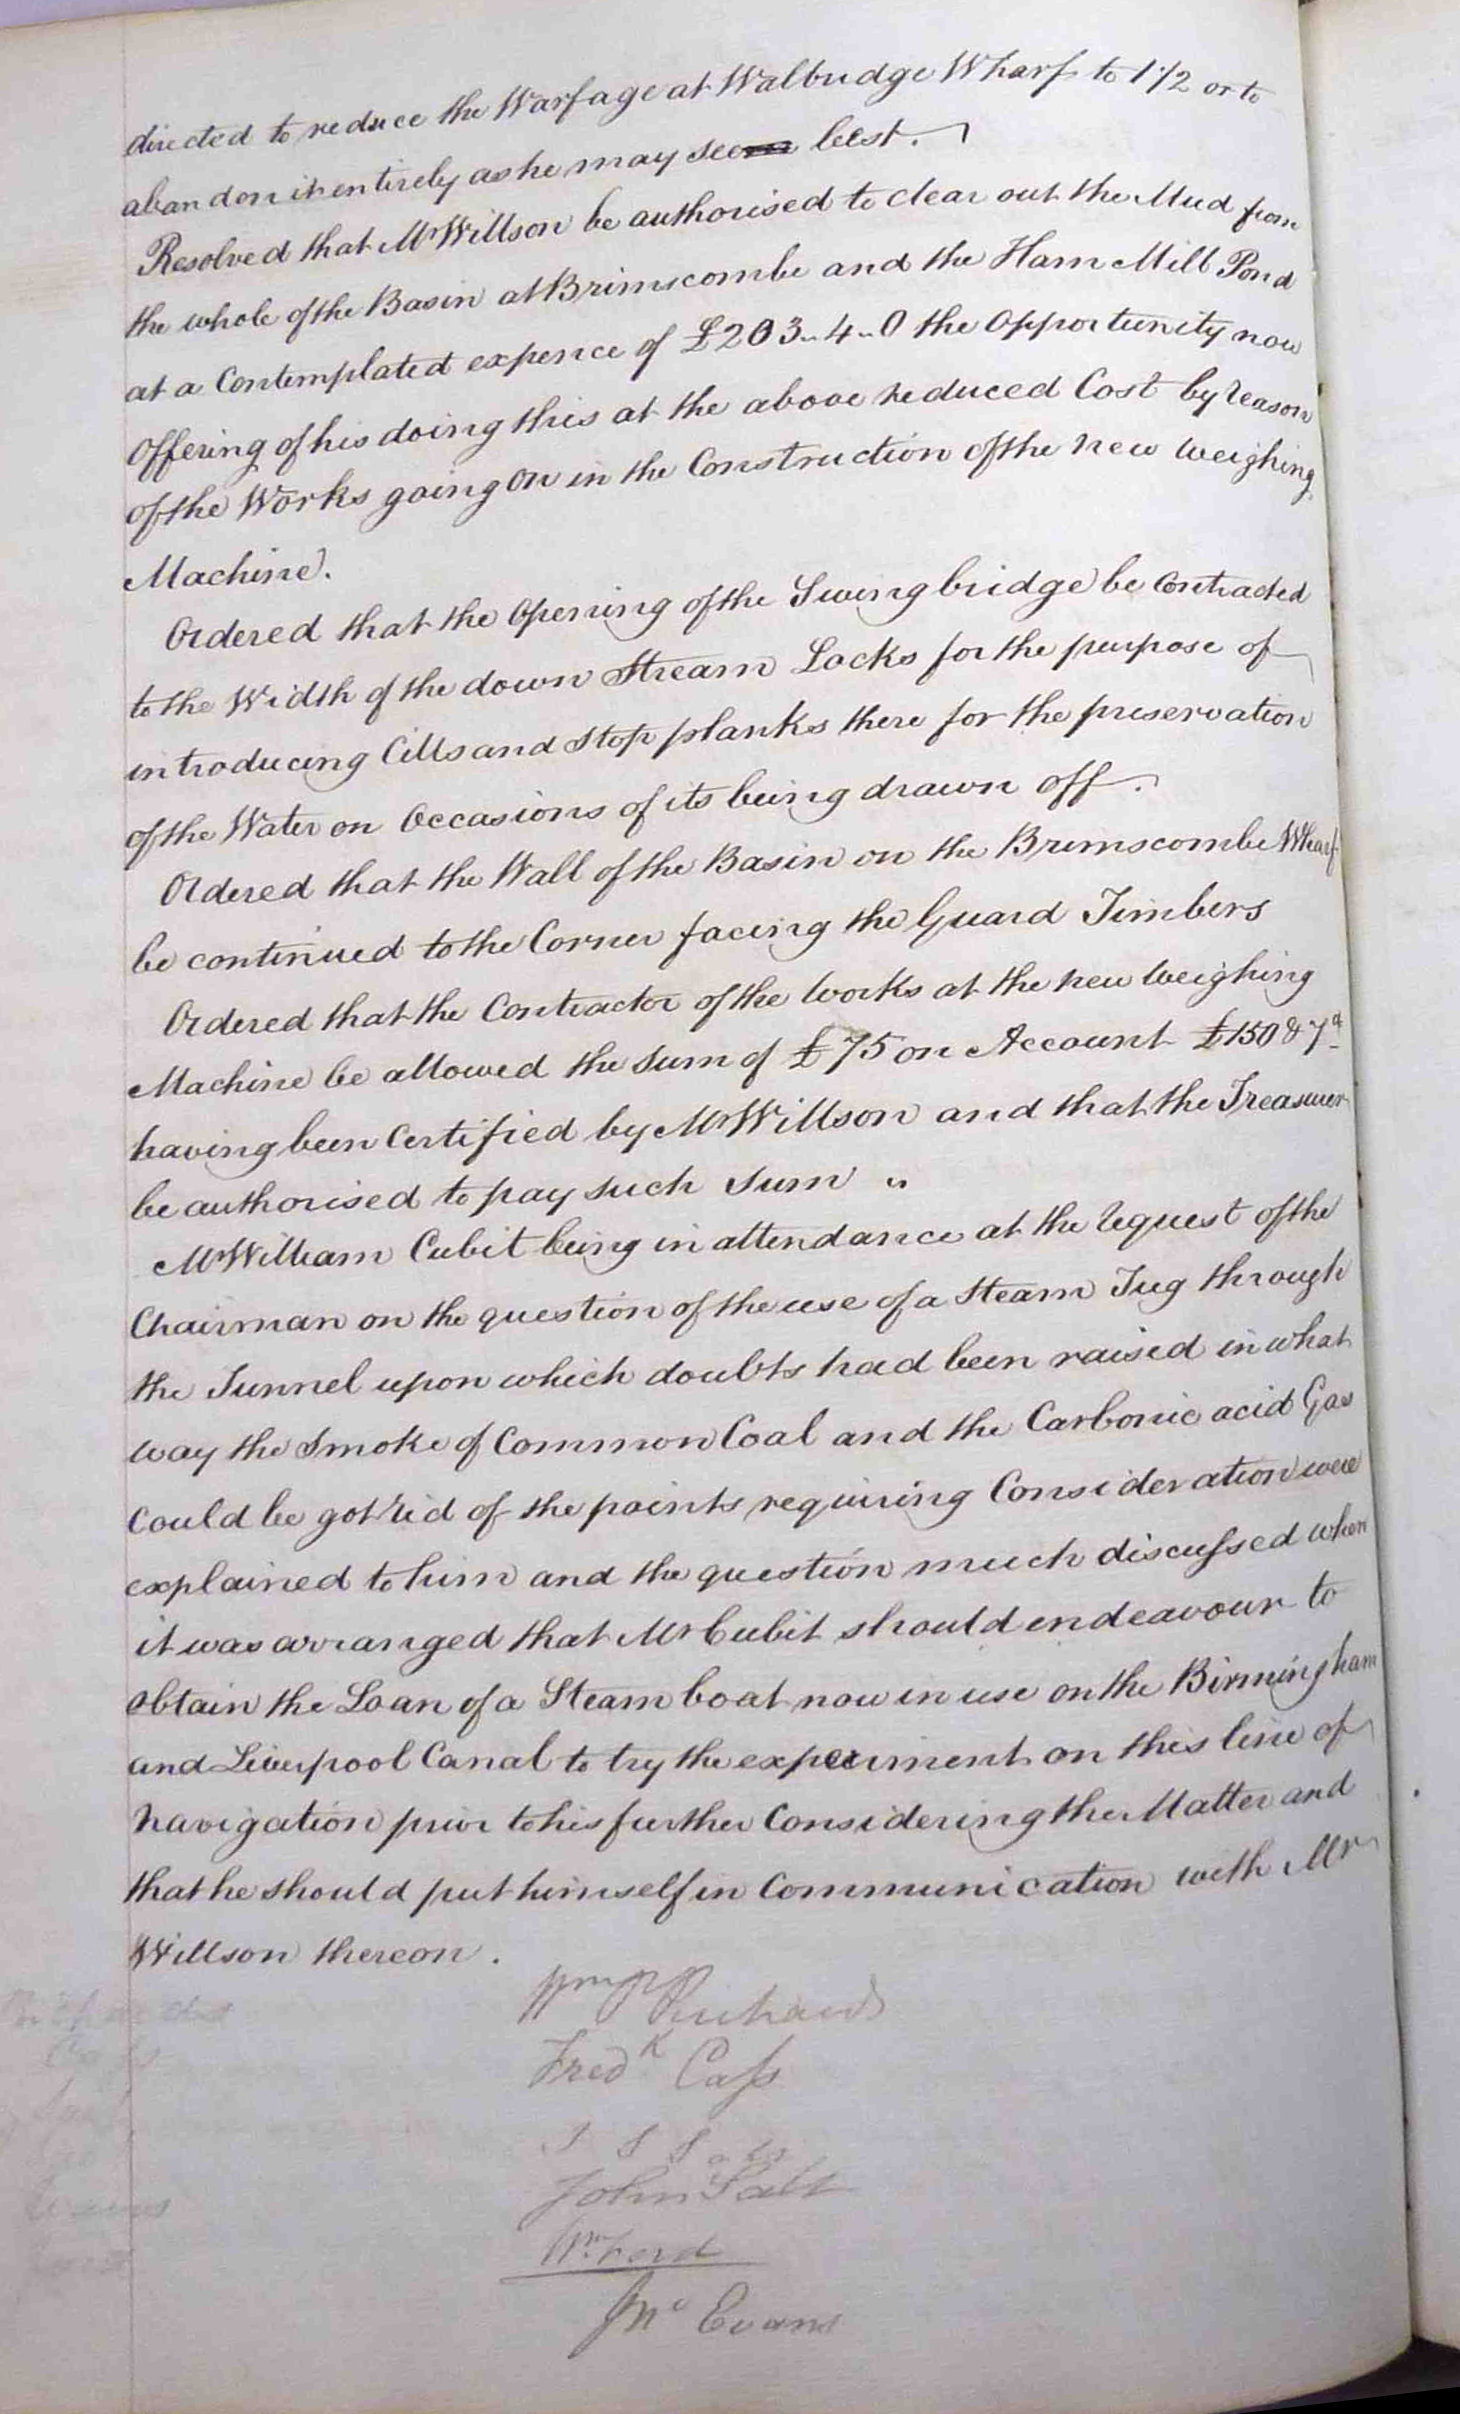 directed to reduce the Warfage at Walbridge Wharf to 1 1/2 or to
abandon it entirely as he may see best.
Resolved that Mr Willson be authorised to clear out the Mud from
the whole of the Basin at Brimscombe and the Ham Mill Pond
at a Contemplated expence of £203..4..0 the Opportunity now
Offering of his doing this at the above reduced Cost by reason
of the Works going on in the Construction of the new Weighing
Machine.
Ordered that the Opening of the Swing bridge be Contracted
to the Width of the down Stream Locks for the purpose of
introducing Cills and Stop planks there for the preservation
of the Water on Occasions of its being drawn off.
Ordered that the Wall of the Basin on the Brimscombe Wharf
be continued to the Corner facing the Guard Timbers
Ordered that the Contractor of the Works at the new Weighing
Machine be allowed the Sum of £75 on Account £150 & 7d
having been Certified by Mr Willson and that the Treasurer
be authorised to pay such Sum "
Mr William Cubit being in attendance at the request of the
Chairman on the question of the use of a Steam Tug through
the Tunnel upon which doubts had been raised in what
way the Smoke of Common Coal and the Carbonic acid Gas
Could be got rid of the points requiring Consideration were
explained to him and the question much discussed when
it was arranged that Mr Cubit should endeavour to
obtain the Loan of a Steam boat now in use on the Birmingham
and Liverpool Canal to try the experiment on this line of
Navigation prior to his further Considering the Matter and
that he should put himself in Communication with Mr
Willson thereon.
Wm P Richards
Fredk Cass
John Salt
Wm Ford
Jno Evans